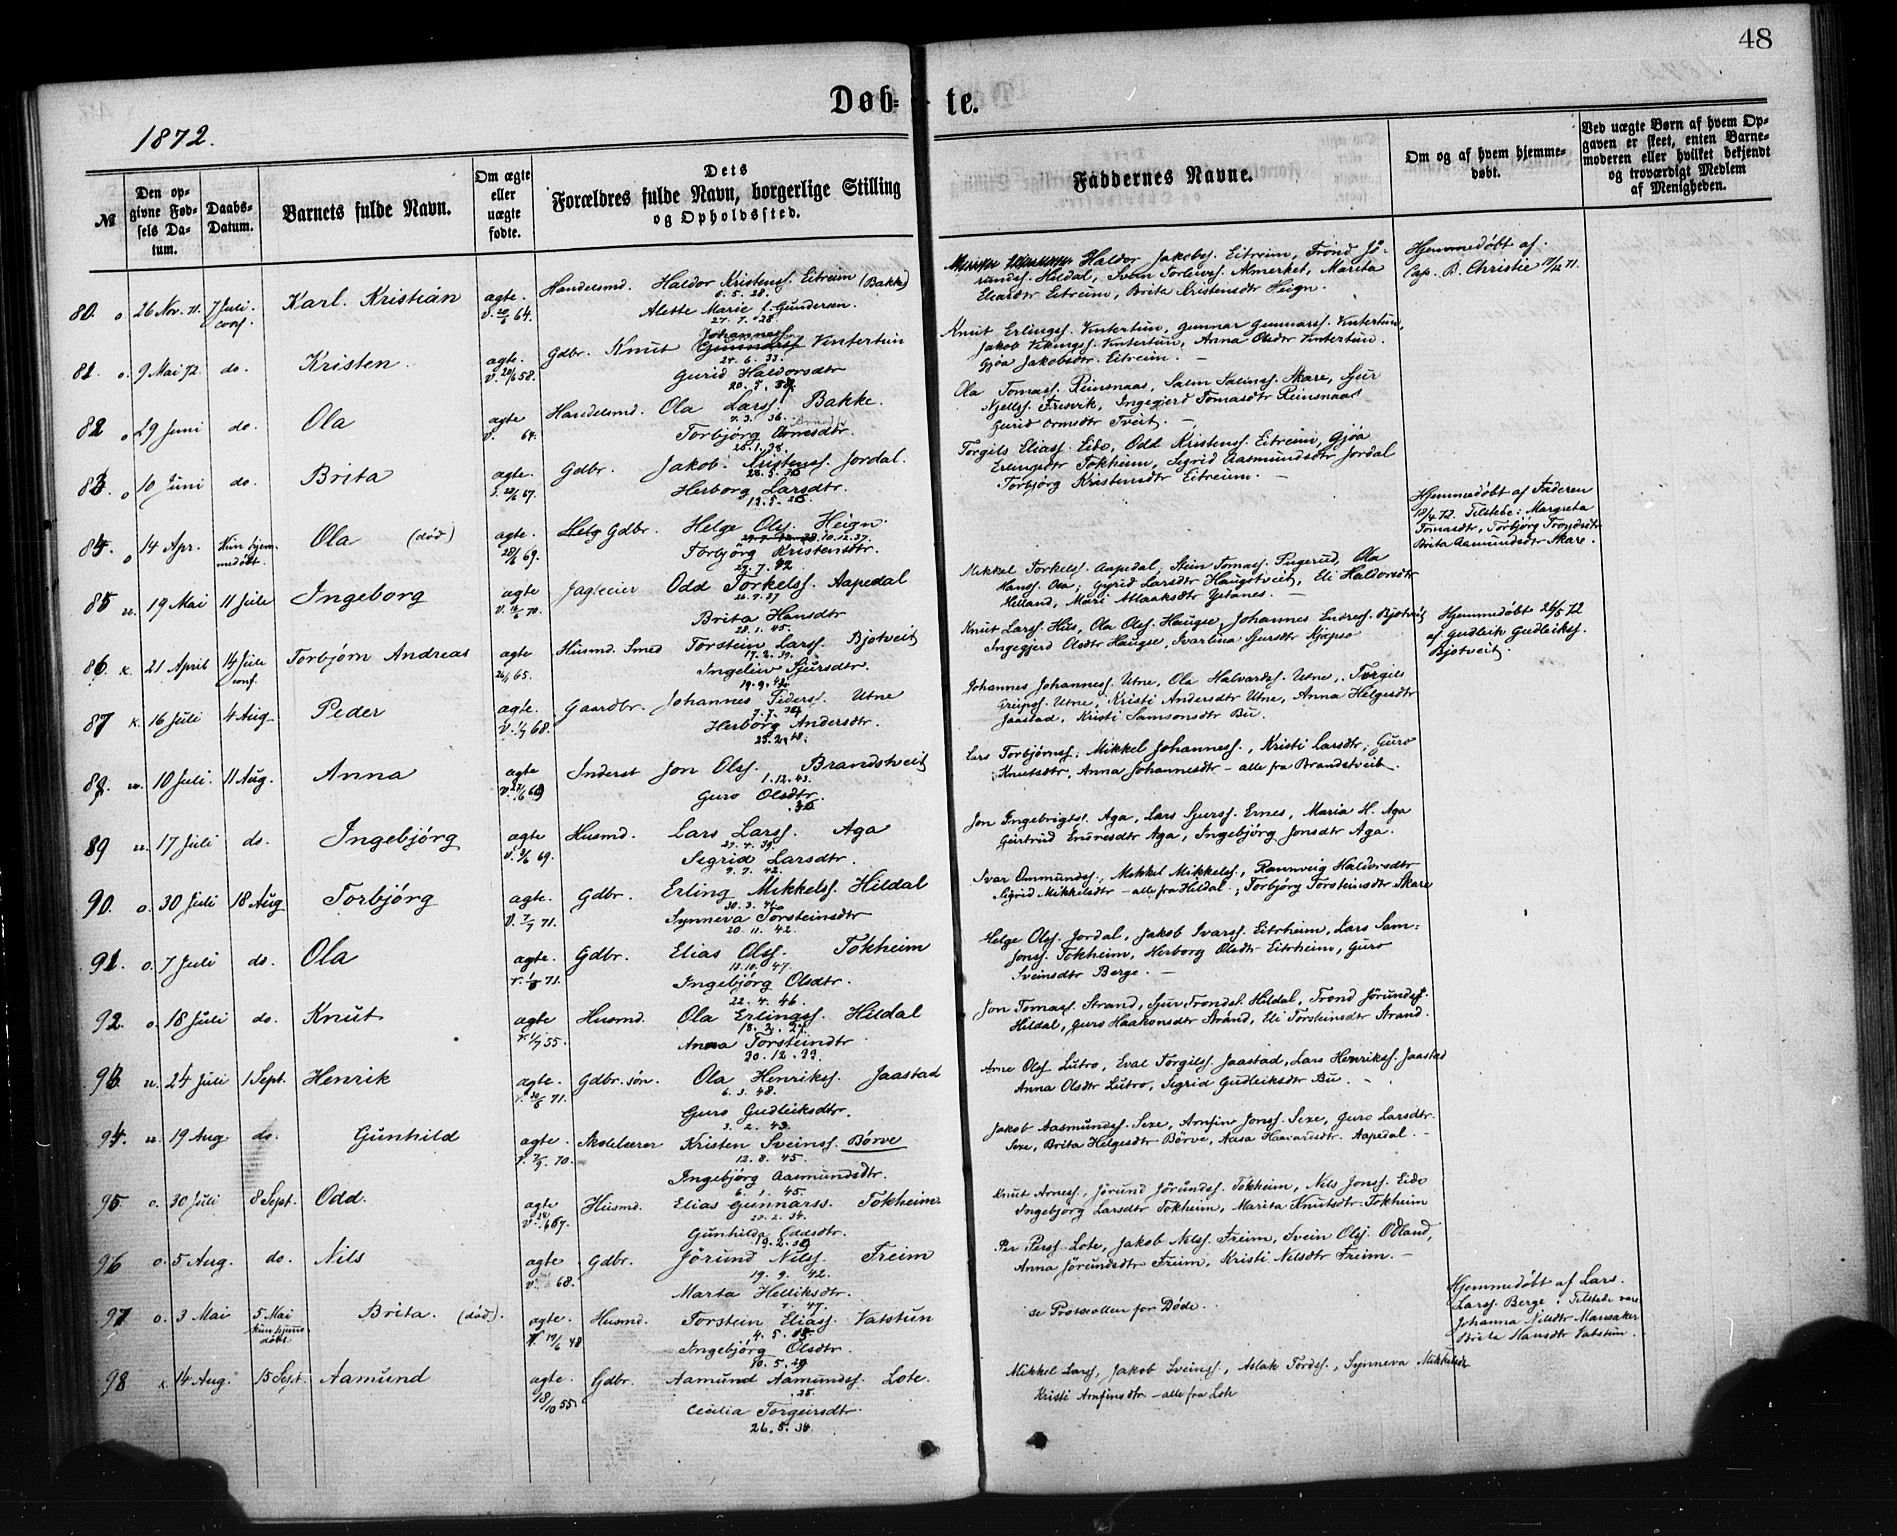 48
Døb- te.
1872.
№
Den op-
givne Fød-
sels Da-
tum.
Daabs-
Datum.
Barnets fulde Navn.
Om ægte
eller
uægte
fødte.
Dets
Forældres fulde Navn, borgerlige Stilling
og Opholdssted.
Faddernes Navne.
Om og af hvem hjemme-
døbt.
Ved uægte Børn af hvem Op-
gaven er skeet, enten Barne-
moderen eller hvilket bekjendt
og troværdigt Medlem
af Menigheden.
80. o 26 Nov. 71. 7 Juli conf. Karl Kristian agte. 64. Handelsmd. Haldor Kristens. Eitreim (Bakke)
6.5.28.
Alette Marie f. Gundersen.
27.7.28
Haldor Jakobs. Eitreim, Trond Jö-
runds. Hildal, Svein Torleivs. Almerket, Marita
Eitreim, Brita Kristensdtr Heign.
Hjemmedøbt af
Cap. B. Christie 17/12 71.
81. o. 9 Mai 72. do. Kristen. agte. 58. Gdbr. Knut Johanness. Vintertun
24.6.33.
Gurid Haldorsdtr
Knut Erlings. Vintertun, Gunnar Gunnars. Vintertun,
Jakob Vikings. Vintertun, Anna Olsdtr Vintertun.
Gjøa Jakobsdtr. Eitreim. —
82 o 29 Juni do. Ola agte 64. Handelsmd. Ola Larss. Bakke.
7.3.36.
Torbjörg
Ola Tomass. Reinsnaas, Salm Salms. Skare, Sjur
Njells. Freovik, Ingegjerd Tomasdtr Reinsnaas
Gurid Ormsdtr Tveit. —
83. o 10 Juni do. Brita agte. 67. Gdbr. Jakob Kristens. Jordal.
Herborg Larsdtr.
Torgils Elias. Eide, Odd Kristens. Eitreim, Gjøa
Erlingsdtr Tokheim, Sigrid Aasmundsdtr Jordal
Torbjørg Kristensdtr Eitreim. —
84. o 14 Apr. Kun hjem-
medøbt. Ola (död) agte. 28/6 69. Gdbr. Helge Ols. Heign.
10.12.37.
Torbjörg Kristensdtr.
Hjemmedøbt af Faderen
72. Tilstede: Margreta
Tomasdtr, Torbjörg Trondsdtr
Brita Aamundsdtr Skare.
85 u. 19 Mai 11 Juli Ingeborg agte 70. Jagteier Odd Torkels. Aapedal
Brita Hansdtr
28.1.45.
Mikkel Torkels. Aapedal; Stein Tomas. Ola
Hans. Gyrid Larsdtr Haugstveit, Eli Haldorsdtr
Helland, Mari Aslaksdtr Ystanes. —
86. k. 21 April 14 Juli conf. Torbjørn Andreas agte 65. Husmd. Smed Torstein Larss. Bjotveit
Ingeliev Sjursdtr.
Knut Larss. Hus, Ola Ols. Haugse, Johannes Endres. Bjotveit
Ingegjerd Olsdtr Haugse, Ivarlina Sjursdtr
Hjemmedøbt 26/5 72
af Gudleik Gudleiks.
Bjotveit.
87 k. 16 Juli 4 Aug Peder agte. 68. Gaardbr. Johannes Peders. Utne
Herborg Andersdtr.
Johannes Johannes. Utne, Ola Halvards. Utne, Torgils
Utne, Kristi Andersdtr Utne, Anna Helgesdtr
Jaastad, Kristi Samsonsdtr Bu.
88. u. 10 Juli. 11 Aug. Anna agte Inderst Jon Ols. Brandstveit
1.12.43.
Guro Olsdtr.
Lars Torbjørns; Mikkel Johannes., Kristi Larsdtr, Guro
Knutsdtr, Anna Johannesdtr — alle fra Brandstveit.
89 u. 17 Juli do. Ingebjörg agte 69. Husmd. Lars Larss. Aga
27.4.39.
Sigrid Larsdtr.
9.7.42.
Jon Ingebrigts. Aga, Lars Sjurs. Ernes, Maria H. Aga
Geirtrud Endresdtr Aga, Ingebjörg Jonsdtr Aga.
90. o. 30 Juli 18 Aug Torbjörg agte. 71. Gdbr. Erling Mikkels. Hildal
Synneva Torsteinsdtr
20.11.42.
Ivar Ommunds., Mikkel Mikkels., Rannveig Haldorsdtr
Sigrid Mikkelsdtr — alle fra Hildal; Torbjörg Torsteinsdtr Skare
91. o. 7 Juli do. Ola agte. 71. Gdbr. Elias Ols. Tokheim
Ingebjörg Olsdtr.
22.4.46.
Helge Ols. Jordal, Jakob Ivars. Eitrheim, Lars Sam-
sons. Tokheim, Herborg Olsdtr Eitrheim, Guro
Sveinsdtr Berge. —
92. o. 18 Juli do. Knut agte 55. Husmd. Ola Erlings. Hildal
Anna Torsteindtr
30.12.33.
Jon Tomas. Strand, Sjur Tronds. Hildal, Trond Jörunds.
Hildal, Guro Haakonsdtr Strand, Eli Torsteinsdtr Strand.
93. u. 24 Juli 1 Sept. Henrik agte. 71. Gdbr. sön. Ola Henriks. Jaastad
6.3.48.
Guro Gudleiksdtr.
3.2.43.
Arne Ols. Lutro, Eval Torgils. Jaastad, Lars Henriks. Jaastad
Anna Olsdtr Lutro, Sigrid Gudleiksdtr Bu. —
94. u. 19 Aug do. Gunhild agte. 70. Skolelærer Kristen Sveins. Börve
12.8.45.
Ingebjörg Aasmundsdtr.
6.1.45.
Jakob Aasmunds. Sexe, Arnfin Jons. Sexe, Guro Larsdtr.
Sexe, Brita Helgesdtr Börve, Aasa Haavardsdtr. Aapedal. —
95. o. 30 Juli 8 Sept. Odd. agte 67. Husmd. Elias Gunnars. Tokheim
Gunhilda Oddsdtr.
Knut Arnes., Jörund Jörunds. Tokheim, Nils Jons. Eide
Ingebjörg Larsdtr Tokheim, Marita Knutsdtr. Tokheim
96 o. 5 Aug. do. Nils agte v. 68. Gdbr. Jörund Nils. Freim
19.9.42.
Marta Helliksdtr.
7.47.
Per Pers. Lote, Jakob Nils. Freim, Svein Ols. Odland,
Anna Jörundsdtr Freim, Kristi Nilsdtr Freim. —
97 o. 3 Mai 5 Mai
Kun hjemme-
døbt Brita. (död). agte. 48 Husmd. Torstein Elias. Vatstun
Ingebjörg Olsdtr.
se Protocollen for Døde.
Hjemmedøbt af Lars
Larss. Berge. Tilstede vare
Johanna Nilsdtr Mansaker
Brita Hansdtr Vatstun.
98 k. 14 Aug. 15 Sept. Aamund agte. 18/10 55. Gdbr. Aamund Aamunds. Lote.
Cecilia Torgeirsdtr.
Mikkel Lars., Jakob Sveins., Aslak Tords., Synneva Mikkelsdtr
Kristi Arnfinsdtr. — alle fra Lote